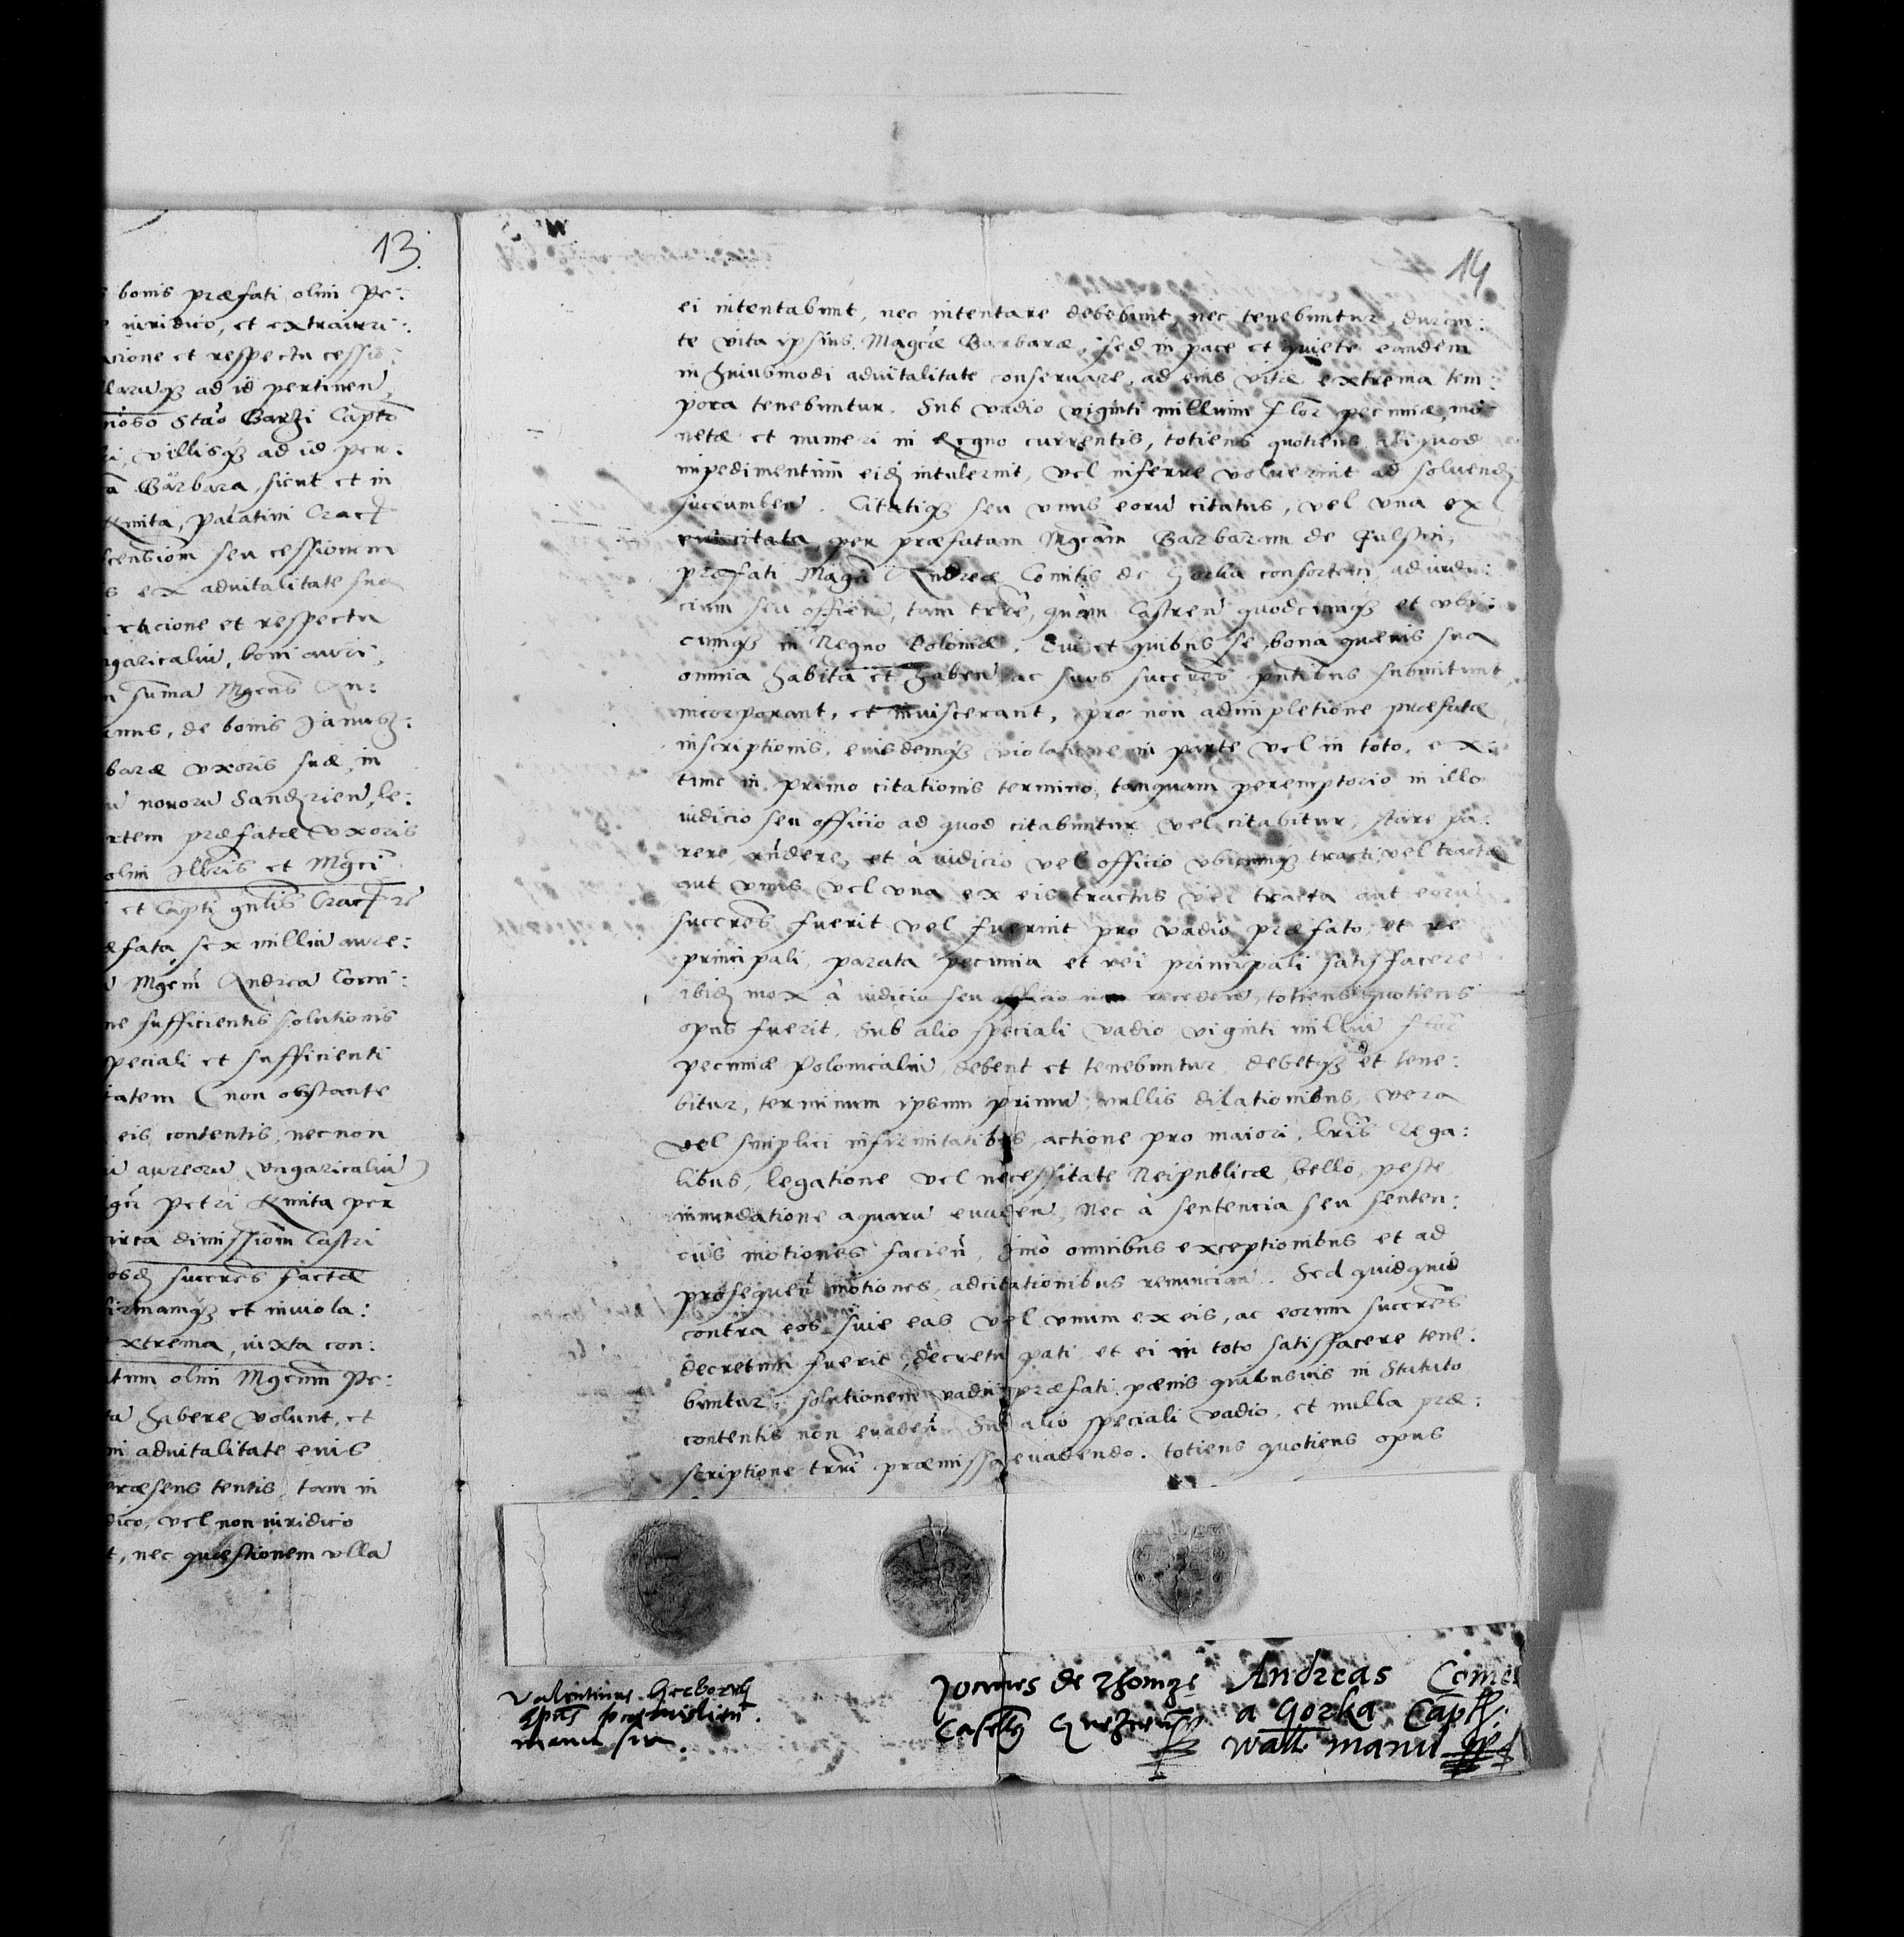 13.
bonis præfati olim Pe:
iuridico, et extraiuri:
acione et respectu cessio:
ad id pertinen,
Stão Barzi Capto
villisq3 ad id per:
Barbara, sicut et in
Kmita, palatini Crac
seu cessionem
ex aduitalitate sua
racione et respectu
ngaricaliũ, boni auri,
sũma Mgcus An:
de bonis
baræ vxoris suæ, in
nouorũ Sandzien, le:
rtem præfatæ vxoris
olim Illtris et Mgci
et Capti gnlis Crac
æfata, sex milliũ aure:
Mgcm Andrea Comi:
ne sufficientis solutionis
speciali et sufficienti
tatem (non obstante
eis contentis, necnon
aureorũ Vngaricaliũ)
Petri Kmita per
circa dimissionẽ Castri
succres factæ
firmamq3 et inuiola:
xtrema, iuxta con:
olim Mgcum Pe:
habere volunt, et
in aduitalitate eius
præsens tentis, tam in
dico, vel non iuridico
t, nec quæstionem vlla
14
ei intentabunt, nec intentare debebunt, nec tenebuntur, duran:
te vita ipsius Magcæ Barbaræ, sed in pace et quiete eandem
in huiusmodi aduitalitate conseruare, ad eius vitæ extrema tem:
pora tenebuntur. Sub vadio viginti millium flor pecuniæ, mo:
netæ et numeri in Regno currentis, totiens quotiens aliquod
impedimentum eid intulerint, vel inferre voluerint ad soluend
succumben. Citatiq3 seu vnus eorũ citatus, vel vna ex
eis citata, per præfatam Mgcam Barbaram de
præfati Magci Andreæ Comitis de Gorka consortem, ad iudi:
cium seu officiũ, tam trre, quàm Castren quodcunq3 et vbi:
cunq3 in Regno Poloniæ. Cui et quibus se, bona quæuis sua
omnia habita et haben, ac suos succres pntibus submittunt,
incorporant, et inuiscerant, pro non adimpletione præfatæ
inscriptionis, eiusdemq3 violatione in parte vel in toto, ex
tunc in primo citationis termino, tanquam peremptorio in illo
iudicio seu officio ad quod citabuntur vel citabitur, stare pa:
rere, rñdere, et à iudicio vel officio vbicunq3 tracti, vel tractæ
aut vnus vel vna ex eis tractus vel tracta aut eorũ
succres fuerit vel fuerint pro vadio præfato, et re
principali, parata pecunia et rei principali satisfacere
ibid mox à iudicio seu officio non recedendo, totiens quotiens
opus fuerit. Sub alio speciali vadio viginti milliũ flor
pecuniæ Polonicaliũ, debent et tenebuntur, debetq3 et tene:
bitur, terminum ipsum primũ, nullis dilationibus, vera
vel simplici infirmitatibus, actione pro maiori, lris Rega:
libus, legatione vel necessitate Reipublicæ, bello, peste
inundatione aquarũ euaden, Nec à sentencia seu senten:
ciis motiones facien, Imò omnibus exceptionibus et ad
prosequen motiones, adcitationibus renuncian. Sed quidquid
contra eos siue eas vel vnum ex eis, ac eorum succres
decretum fuerit, decretũ pati et ei in toto satisfacere tene:
buntur, solutionem vadii præfati pænis quibusuis in Statuto
contentis non euaden. Sub alio speciali vadio, et nulla præ:
scriptione trri præmissa euadendo. totiens quotiens opus
Valentinus Herborth
Epus premislien
manu sua.
Joannes de
Castell
Andreas Comes
a Gorka Capt
manu